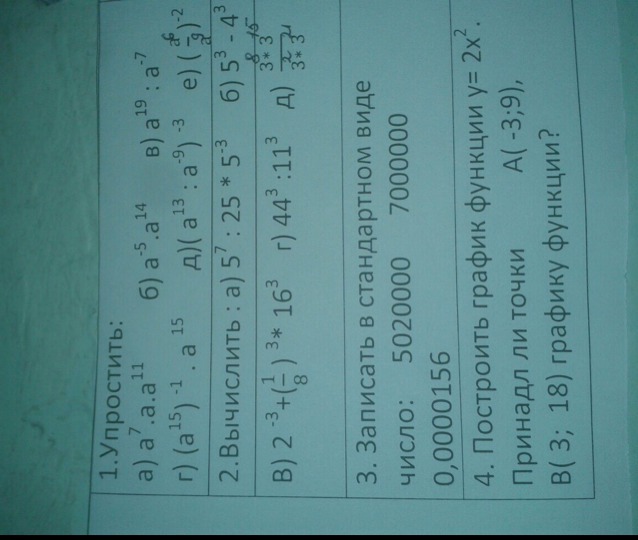 1.Упростить:
а) a⁷.a.a¹¹ б) a⁻⁵.a¹⁴ в) a¹⁹ : a⁻⁷
г) (a¹⁵)⁻¹ . a¹⁵ д)( a¹³ : a⁻⁹)⁻³ е) (a⁶/a⁻⁹)⁻²
2.Вычислить : а) 5⁷ : 25 * 5⁻³ б) 5³ - 4³
В) 2⁻³+(1/8)³* 16³ г) 44³ :11³ д)
3. Записать в стандартном виде
число: 5020000 7000000
0,0000156
4. Построить график функции y= 2x².
Принадл ли точки А( -3;9),
В( 3; 18) графику функции?